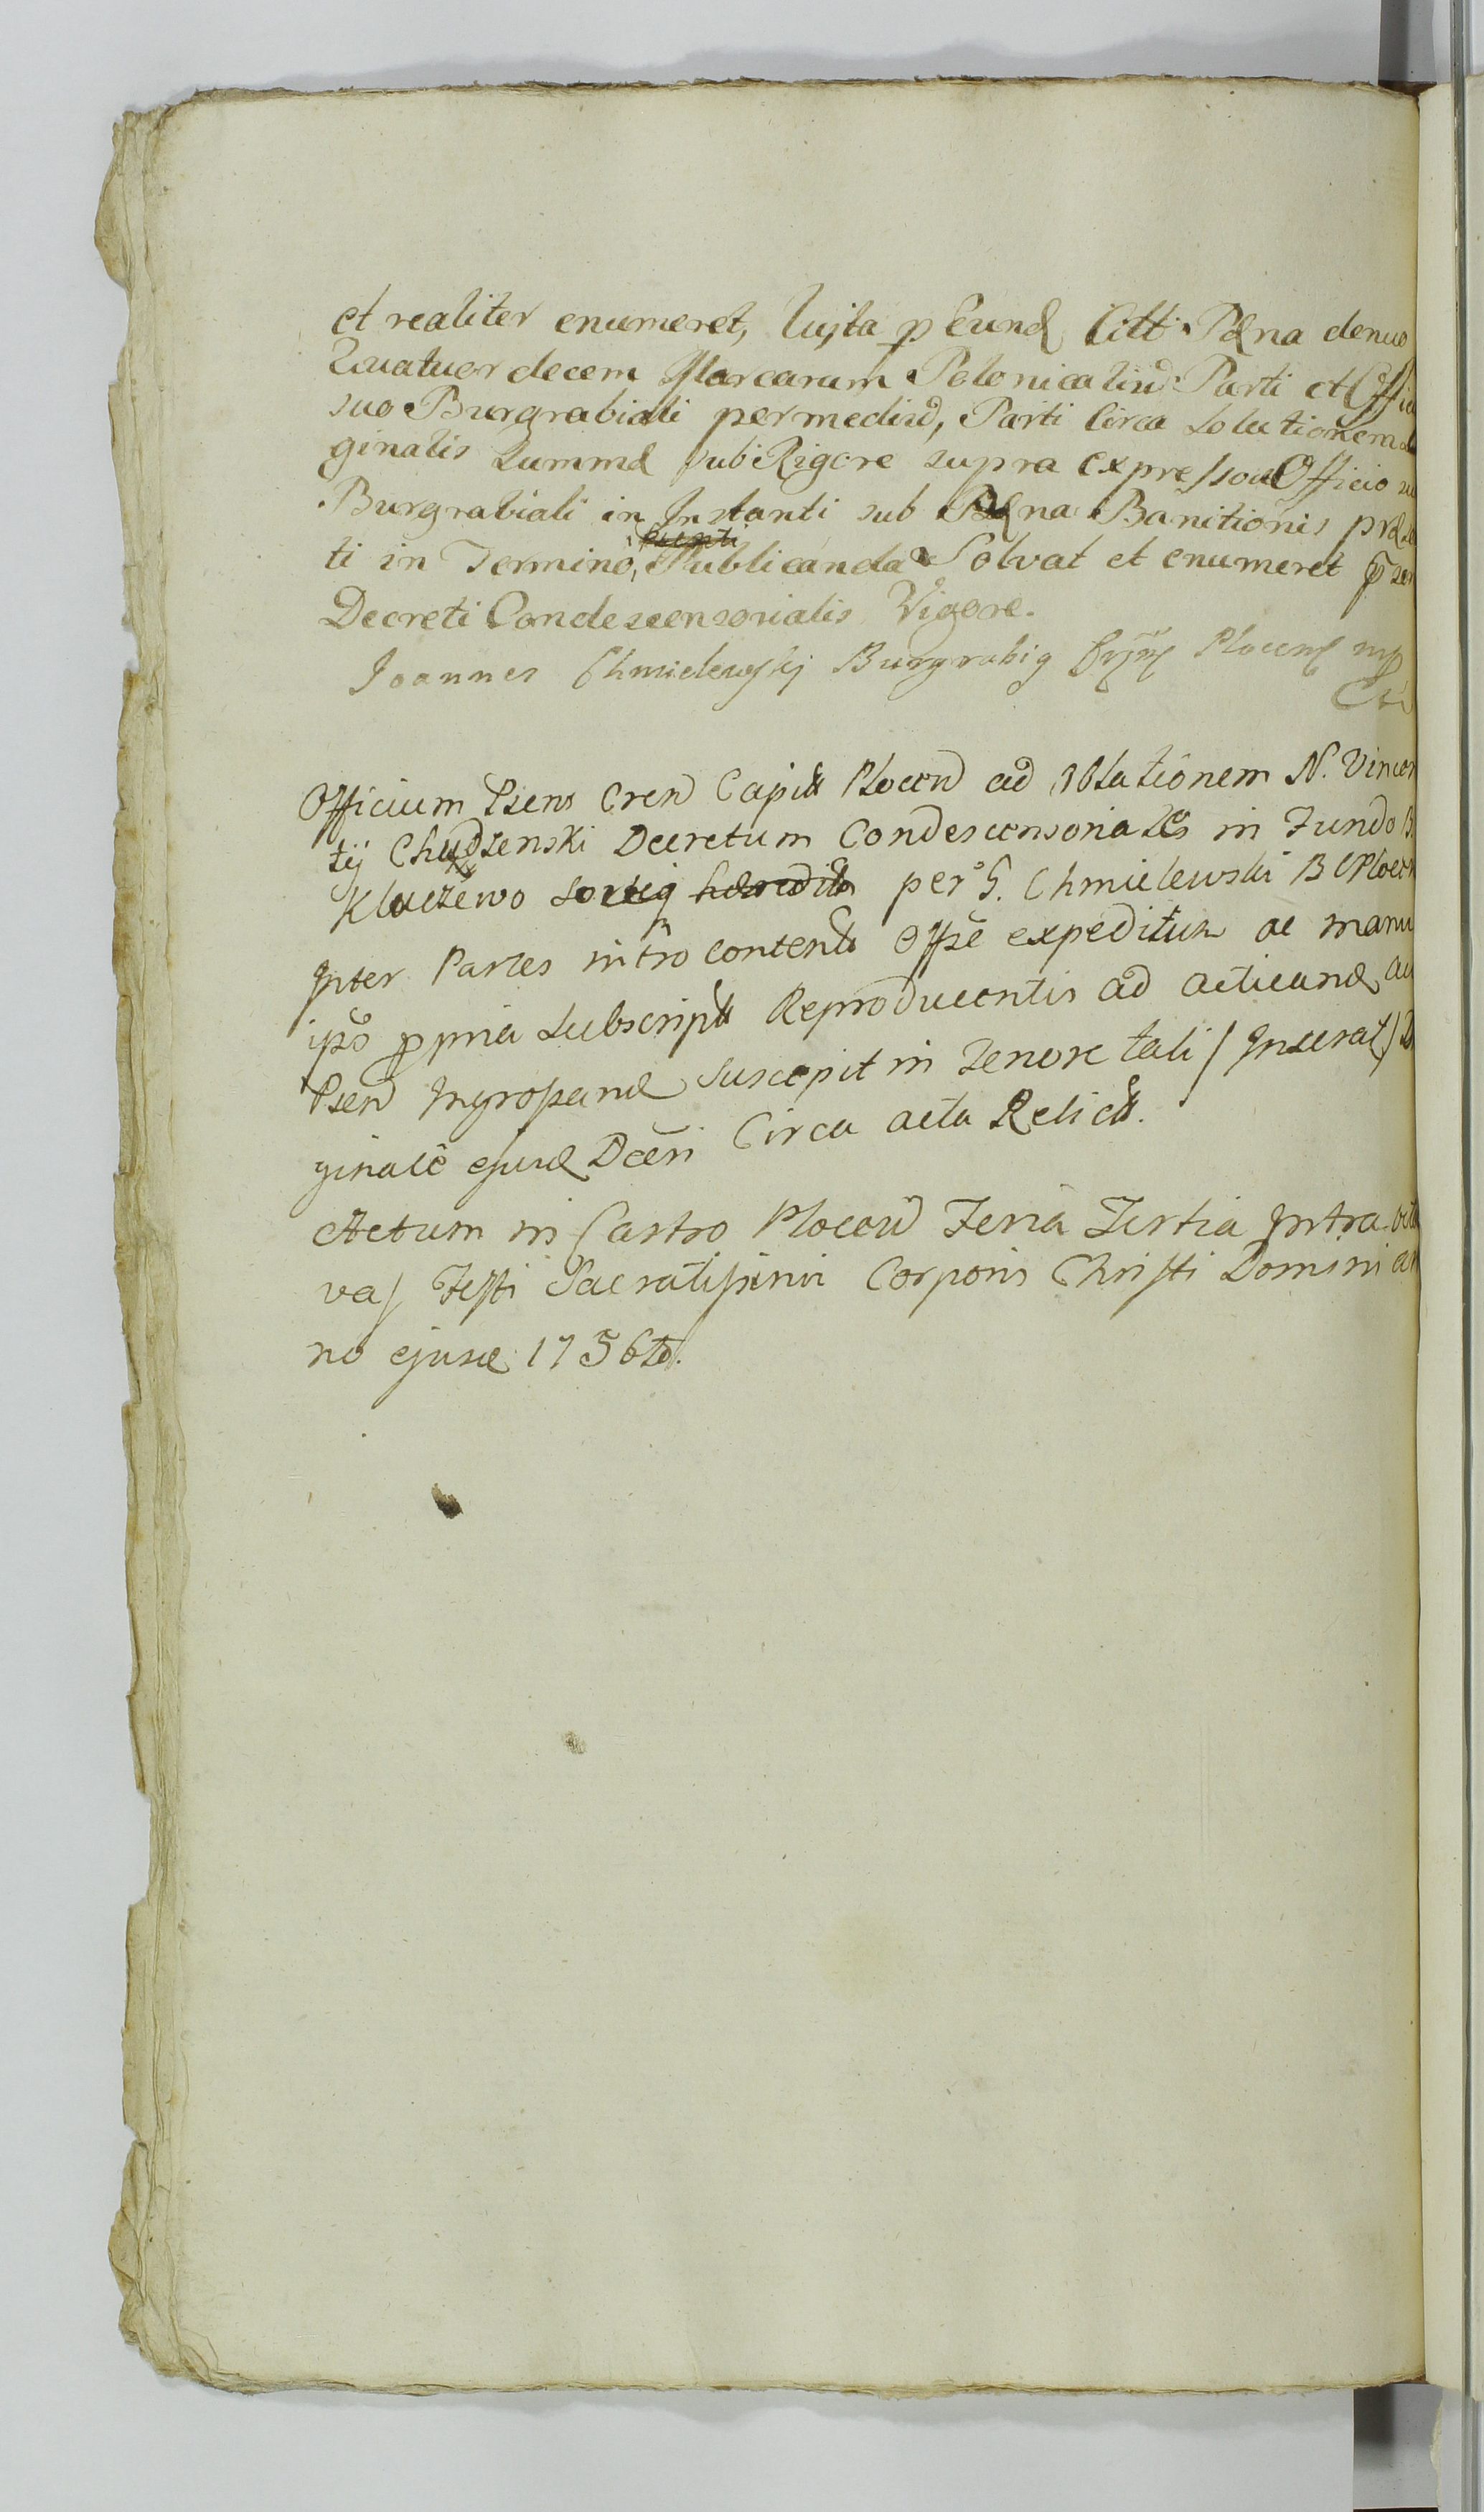 et realiter enumeret, Lujta p Eund Citt. Pæna denuo
Quatuordecem Marcarum Polonicaliu Parti et Offici
suo Burgrabiali permediu, Parti Circa Solutionem
ginalis Summæ sub Rigore supra expresso Officio su
Burgrabiali in Instanti sub Pæna Banitionis præ
ti in Termino, Publicanda Solvat et enumeret
Decreti Condescensorialis Vigore.
Joannes Chmielewskj Burgrabig Plocens mp
Officium Psens Cren Capit Plocen ad Oblationem N. Vincen
tij Chudzenski Decretum Condescensoriales in Fundo B
Kluczewo hæredit per G. Chmielewski B C Plocen
Inter Partes intro contents Offse expeditum ac manu
ipso ppria Subscript Reproducentis ad acticand au
Psen Ingrosand Suscepit in Tenore tali / Inserat /
ginale ejusd Dcen Circa acta Relict.
Actum in Castro Plocen Feria Tertia Intra octa
vas Festi Sacratissimi Corporis Christi Domini an
no ejusd 1756to.